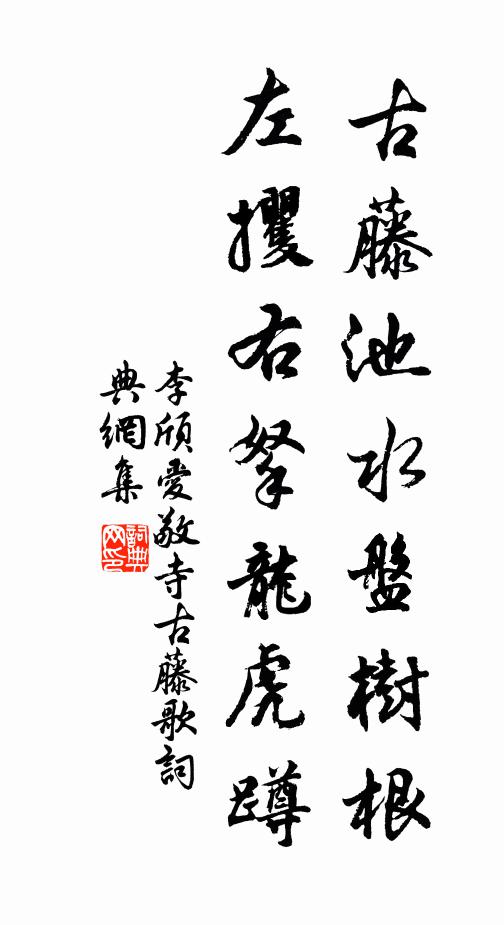 古藤池水盤樹根
左攫右拏龍虎蹲
李頎愛敬寺古藤歌詞
典網集
詞典網印